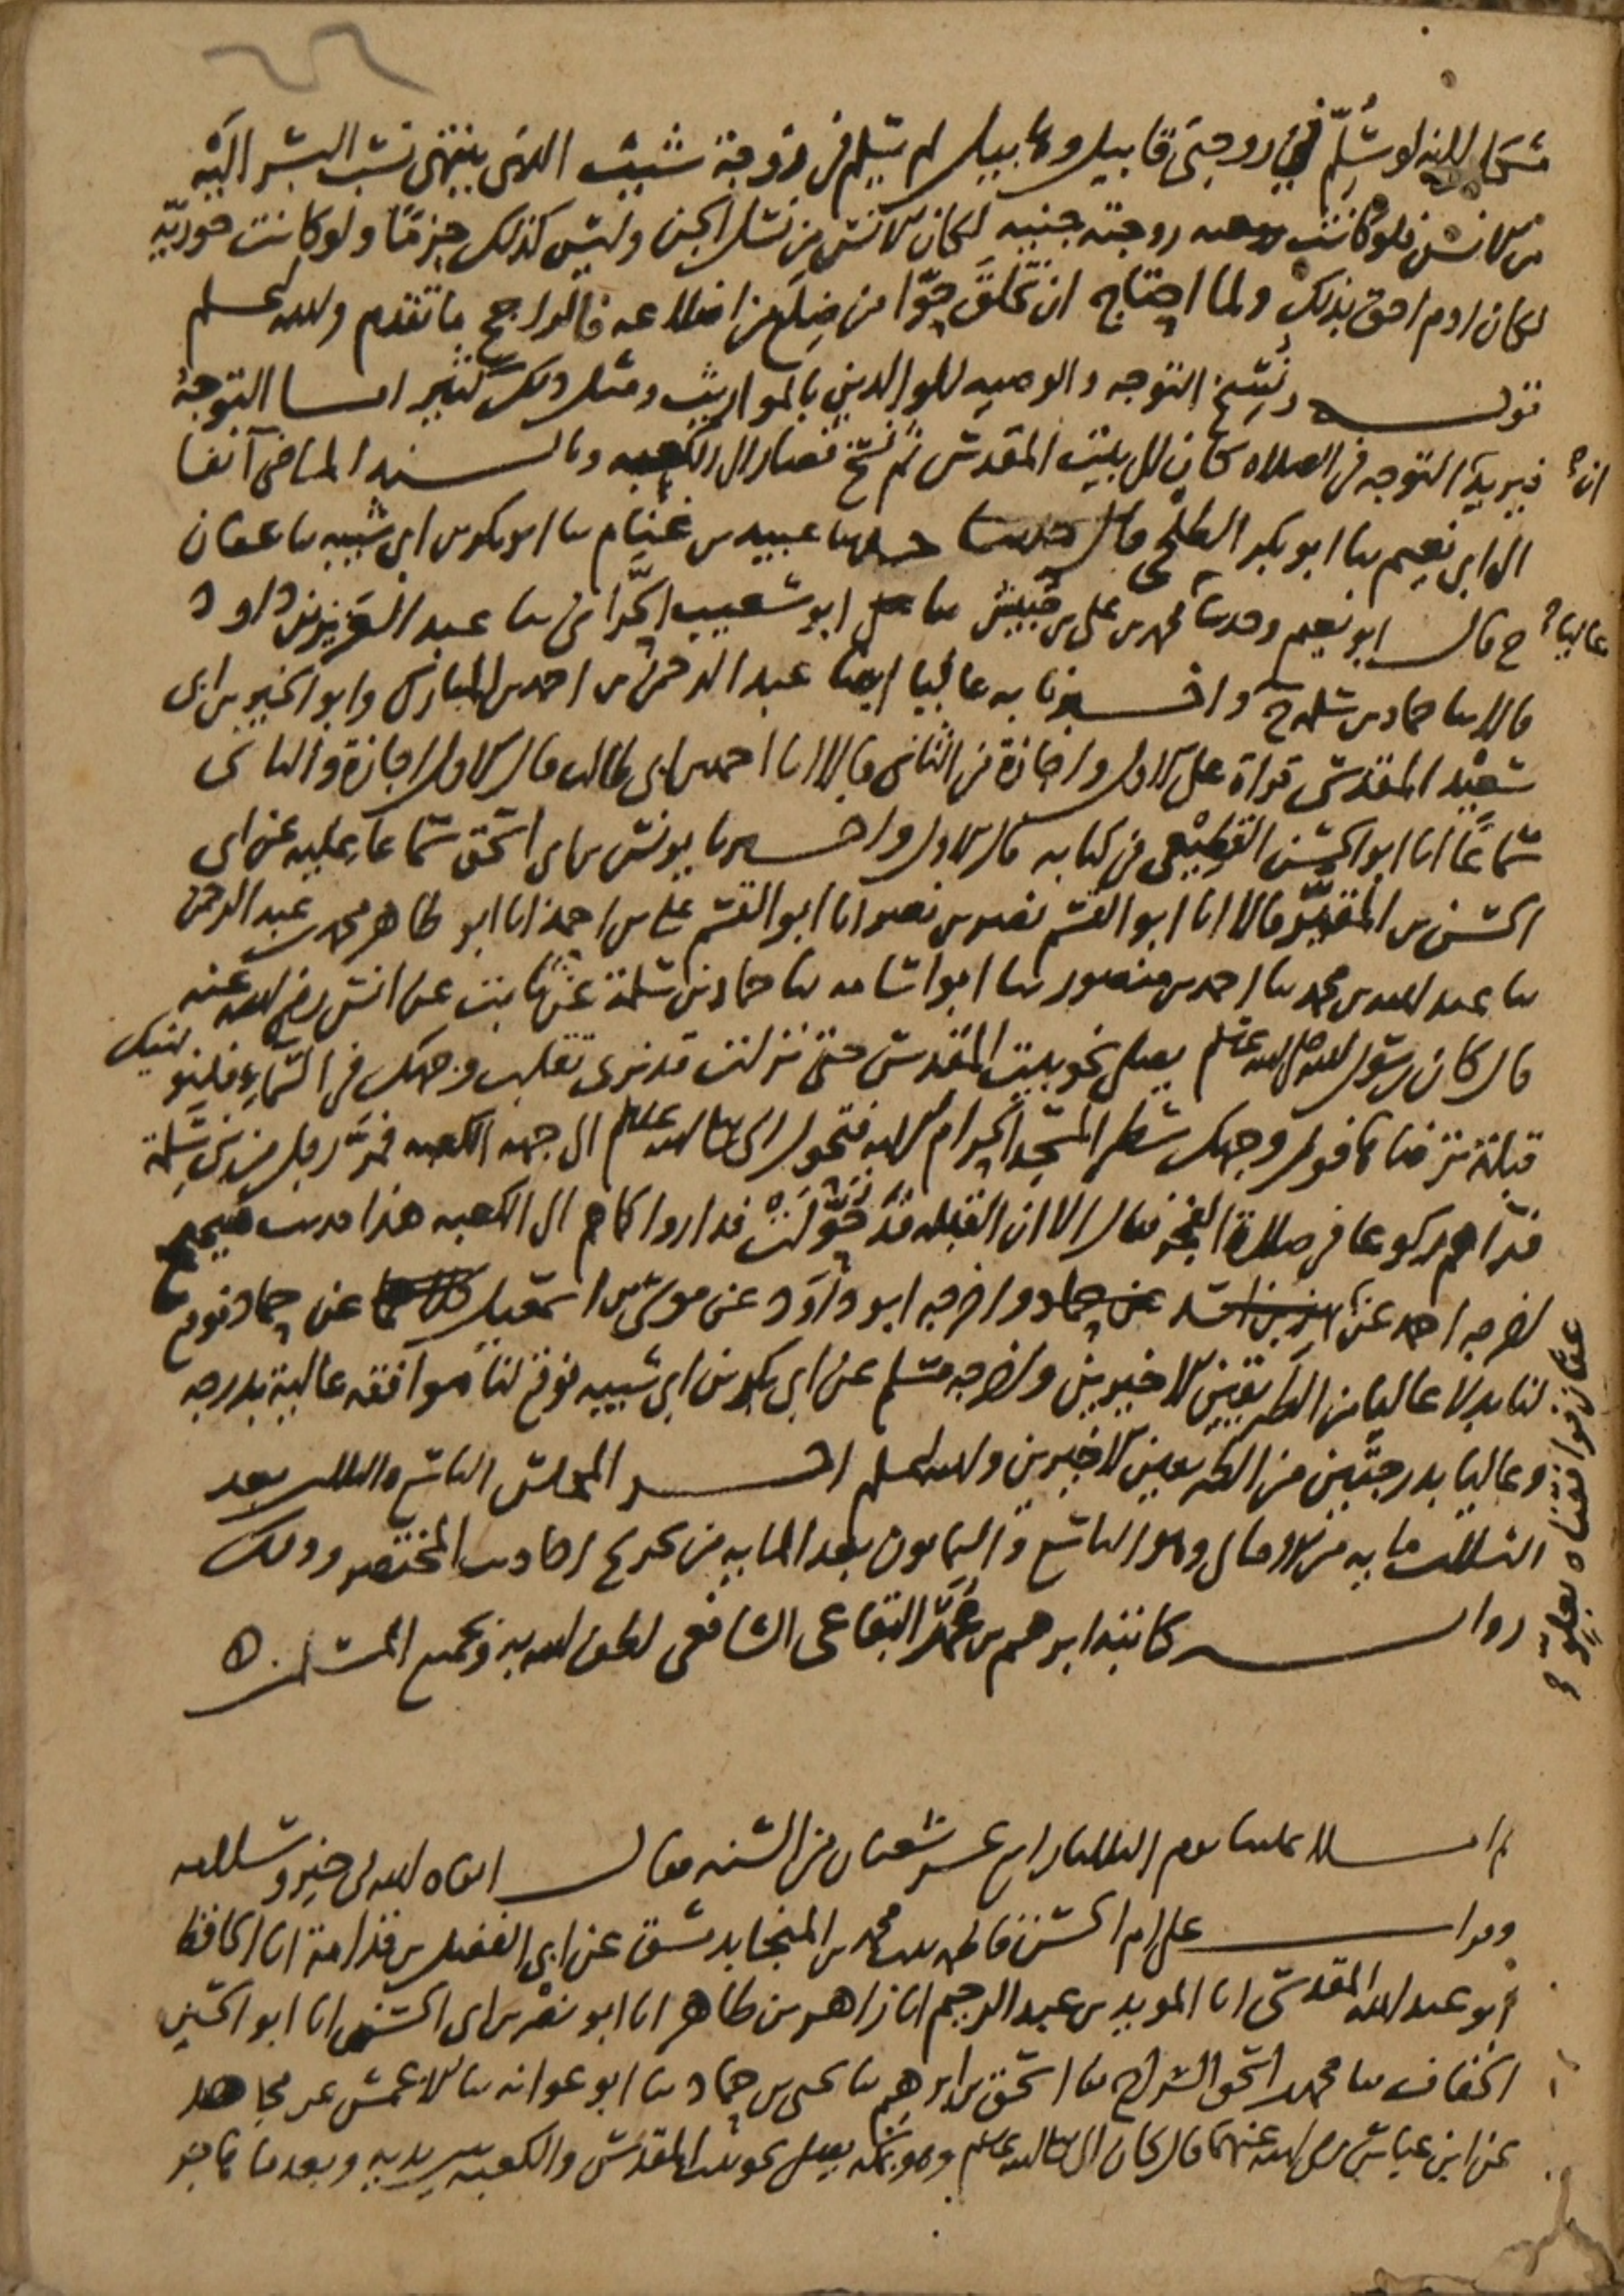 مشكل لانه لو سُلِّم في زوجتَي قابيل وهابيل لم يسلم في زوجة شيث الذي ينتهي نسب البشر اليه
من الانس فلو كانت زوجته جنيه لكان الانس من نسل الجن وليس كذلك جزمًا ولو كانت حوريّه
لكان ادم احق بذلك ولما احتاج ان تخلق حوّا من ضِلَع من اضلاعه فالراجح ما تقدم والله اعلم
قوله ونسخ التوجه والوصيه للوالدين بالمواريث ومثل ذلك كثير اما التوجه
فيريد ان التوجه في الصلاه كان الى بيت المقدس ثم نسخ فصار الى الكعبه وبالسند الماضي آنفا
الى ابي نعيم ثنا ابو بكر الطلحي قال حدثنا عبيد بن غنّام ثنا ابو بكر بن ابي شيبه ثنا عفان
ح قال ابو نعيم وحدثنا محمد بن علي بن حبيش ثنا ابو شعيب الحرّاني ثنا عبد العزيز بن داود
قالا ثنا حماد بن سلمه ح واخبرنا به عاليا ايضا عبد الرحمن بن احمد بن المبارك وابو الخير بن ابي
سعيد المقدسي قراة على الاول واجازة من الثاني قالا انا احمد بن ابي طالب قال الاول اجازة والثاني
سماعًا انا ابو الحسن القطيعي في كتابه قال الاول واخبرنا يونس بن ابي اسحق سماعا عليه عن ابي
الحسن بن المقيّر قالا انا ابو القسم نصر بن نصر انا ابو القسم علي بن احمد انا ابو طاهر محمد بن عبد الرحمن
ثنا عبد الله بن محمد ثنا احمد بن منصور ثنا ابو اسامه ثنا حماد بن سلمة عن ثابت عن انس رضي الله عنه
قال كان رسول الله صلى الله عليه وسلم يصلي نحو بيت المقدس حتى نزلت قد نرى تقلب وجهك في السماء فلنولينك
قبلة ترضاها فول وجهك شطر المسجد الحرام الايه فتحول النبي صلى الله عليه وسلم الى جهه الكعبه فمرّ رجل من بني سَلِمة
فرآهم ركوعا في صلاة الفجر فقال الا ان القبله قد حُوِّلت فداروا كما هم الى الكعبه هذا حديث صحيح
اخرجه احمد عن عفان فوافقناه بعلو واخرجه ابو داود عن موسى بن اسمعيل عن حماد فوقع
لنا بدلا عاليا من الطريقين الاخيرين واخرجه مسلم عن ابي بكر بن ابي شيبه فوقع لنا موافقه عالية بدرجه
وعاليا بدرجتين من الطريقين الاخيرين والله اعلم اخر المجلس التاسع والثلاثين بعد
الثلاث مايه من الامالي وهو التاسع والثمانون بعد المايه من تخريج احاديث المختصر وذلك
رواية كاتبه ابرهيم بن عُمَر البقاعي الشافعي لطف الله به وبجميع المسلمين
ثم املا علينا يوم الثلاثا رابع عشر شعبان من السنه فقال ابقاه الله في خير وسلامه
وقرات على ام الحسن فاطمه بنت محمد بن المنجا بدمشق عن ابي الفضل بن قدامة انا الحافظ
ابو عبد الله المقدسي انا المويد بن عبد الرحيم انا زاهر بن طاهر انا ابو نصر بن ابي الحسن انا ابو الحسين
الخفاف ثنا محمد بن اسحق السراج ثنا اسحق بن ابرهيم ثنا يحيى بن حماد ثنا ابو عوانه ثنا الاعمش عن مجاهد
عن ابن عباس رضي الله عنهما قال كان النبي صلى الله عليه وسلم وهو بمكه يصلي نحو بيت المقدس والكعبه بين يديه وبعدما هاجر